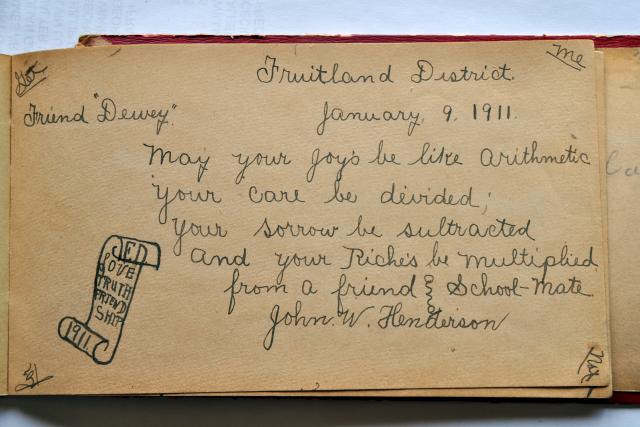 Me
Fruitland District.
Friend "Dewey".
January, 9, 1911.
May your joy's be like arithmetic
Your care be divided;
Your sorrow be subtracted
And your Riche's be multiplied
from a friend & School-mate
John. W. Henderson
JED
LOVE
TRUTH
FRIEND
SHIP
1911.